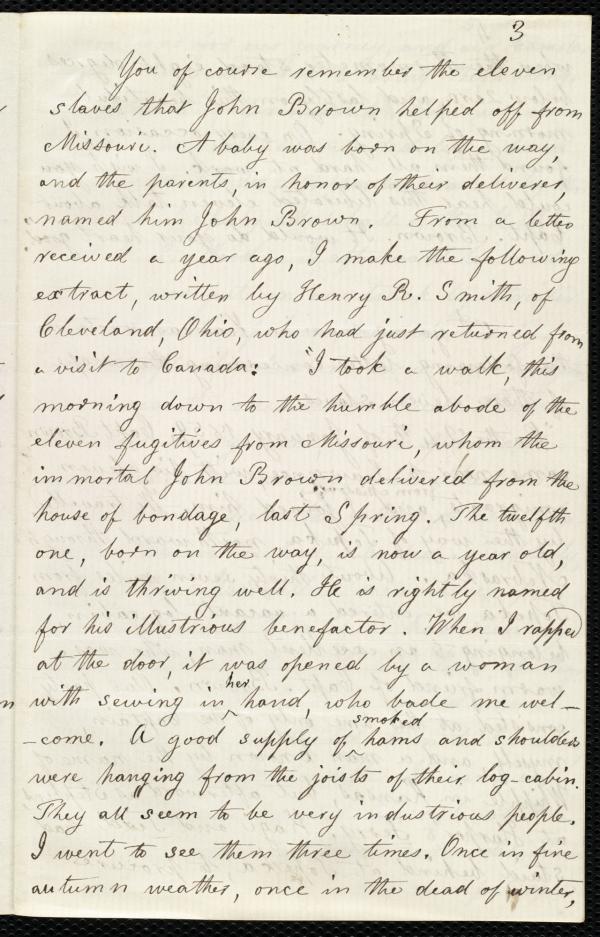 3
You of course remember the eleven
slaves that John Brown helped off from
Missouri. A baby was born on the way,
and the parents, in honor of their deliverer,
named him John Brown. From a letter
received a year ago, I make the following
extract, written by Henry R. Smith, of
Cleveland, Ohio, who had just returned from
a visit to Canada: "I took a walk, this
morning down to the humble abode of the
eleven fugitives from Missouri, whom the
immortal John Brown delivered from the
house of bondage, last Spring. The twelfth
one, born on the way, is now a year old,
and is thriving well. He is rightly named
for his illustrious benefactor. When I rapped
at the door, it was opened by a woman
with sewing in her hand, who bade me wel-
-come. A good supply of smoked hams and shoulders
were hanging from the joists of their log-cabin.
They all seem to be very industrious people.
I went to see them three times. Once in fine
autumn weather, once in the dead of winter,